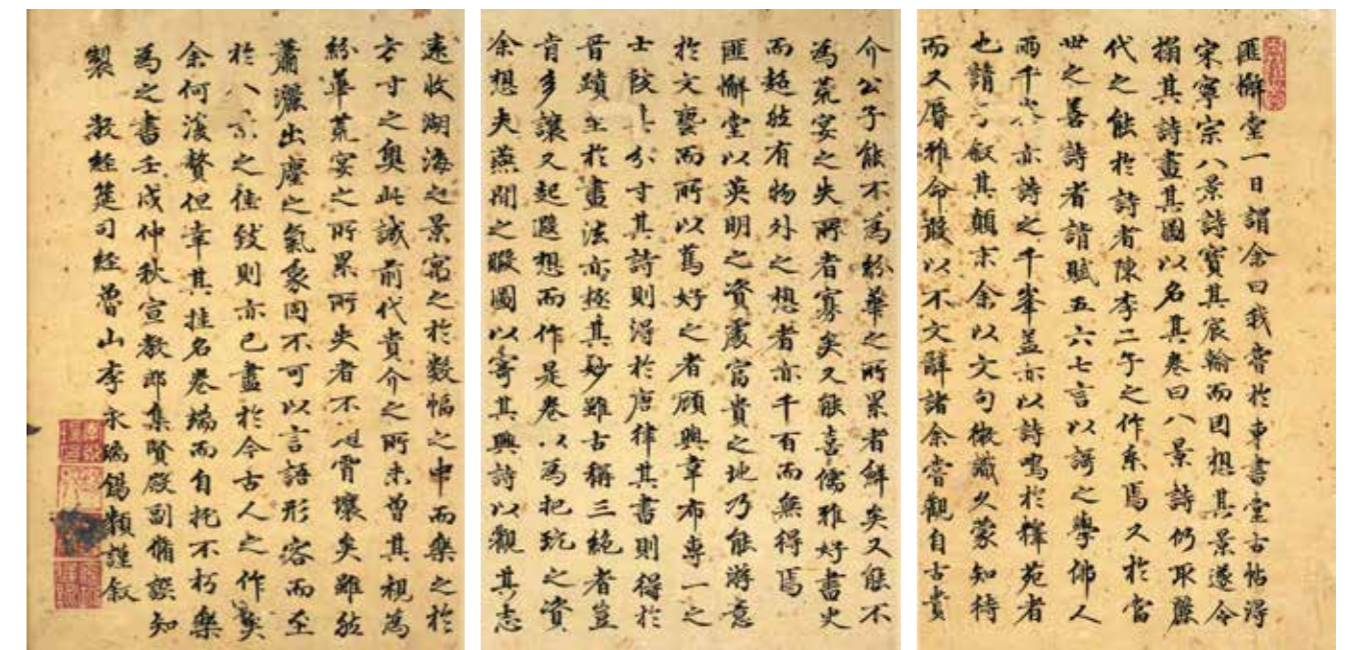 匪懈堂一日謂余曰我嘗於東書堂古帖得
宋寧宗八景詩寶其宸翰而因想其景遂令
搨其詩畫其圖以名其卷曰八景詩仍取麗
代之能於詩者陳李二子之作系焉又於當
世之善詩者請賦五六七言以謌之學佛人
雨千亦詩之千峯盖亦以詩鳴於釋苑者
也請敍其顚末余以文句微久蒙知待
而又辱雅命敢以不文辭諸余嘗觀自古貴
介公子能不爲紛華之所累者鮮矣又能不
爲荒宴之失所者寡矣又能喜儒雅好書史
而超然有物外之想者亦千百而無得焉
匪懈堂以英明之資處富貴之地乃能游意
於文藝而所以篤好之者顧與韋布專一之
士較分寸其詩則得於唐律其書則得於
晉蹟至於畫法亦極其妙雖古稱三絶者豈
肯多讓又起遐想而作是卷以爲把玩之資
余想夫燕閒之暇圖以寄其興詩以觀其志
遠收湖海之景寓之於數幅之中而樂之於
方寸之奧此誠前代貴介之所未曾其視爲
紛華荒宴之所累所失者不啻霄壤矣雖然
蕭灑出塵之氣象固不可以言語形容而至
於八景之佳致則亦已盡於今古人之作矣
余何復贅但幸其挂名卷端而自托不朽樂
爲之書壬戌仲秋宣教郎集賢殿副脩譔知
製 教經筵司經魯山李永瑞錫類謹敍